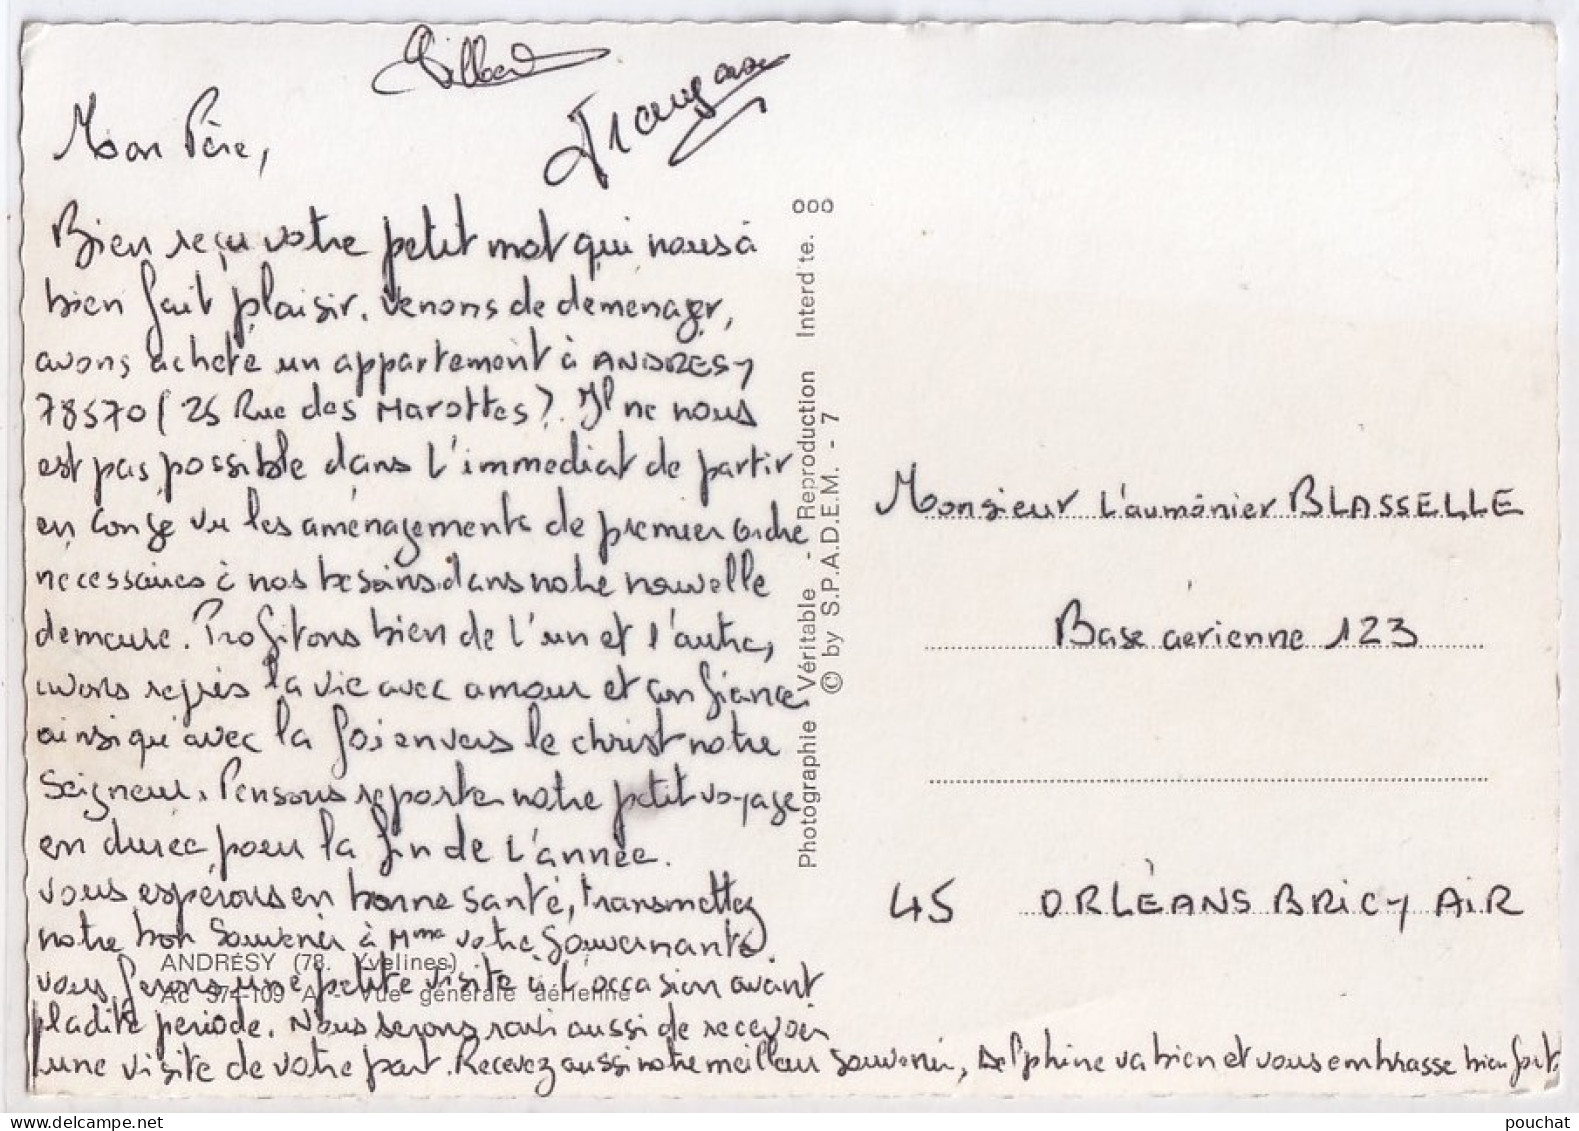 Gilbert
Mon Père,
Bien reçu votre petit mot qui nous à
bien fait plaisir. Venons de demenager,
avons acheté un appartement à ANDRÉSY
78570 (25 Rue des Marottes). Il ne nous
est pas possible dans l'immediat de partir
en congé vu les aménagements de premier ordre
necessaires à nos besoins dans notre nouvelle
demeure. Profitons bien de l'un et l'autre,
avons repris la vie avec amour et confiance
ainsi qu'avec la foi envers le christ notre
Seigneur. Pensons reporter notre petit voyage
en durée pour la fin de l'année.
Vous espérons en bonne santé, transmettez
notre bon souvenir à Mme votre Gouvernante.
vous ferons une petite visite à l'occasion avant
la dite periode. Nous serons ravi aussi de recevoir
une visite de votre part. Recevez aussi notre meilleur souvenir, Delphine va bien et vous embrasse bien fort.
ANDRÉSY (78. Yvelines)
Ac 574-109 A - Vue générale aérienne
Photographie Véritable - Reproduction Interd'te. 000
© by S.P.A.D.E.M. - 7
Monsieur L'aumônier BLASSELLE
Base aérienne 123
45 ORLÉANS BRICY AIR
pouchat